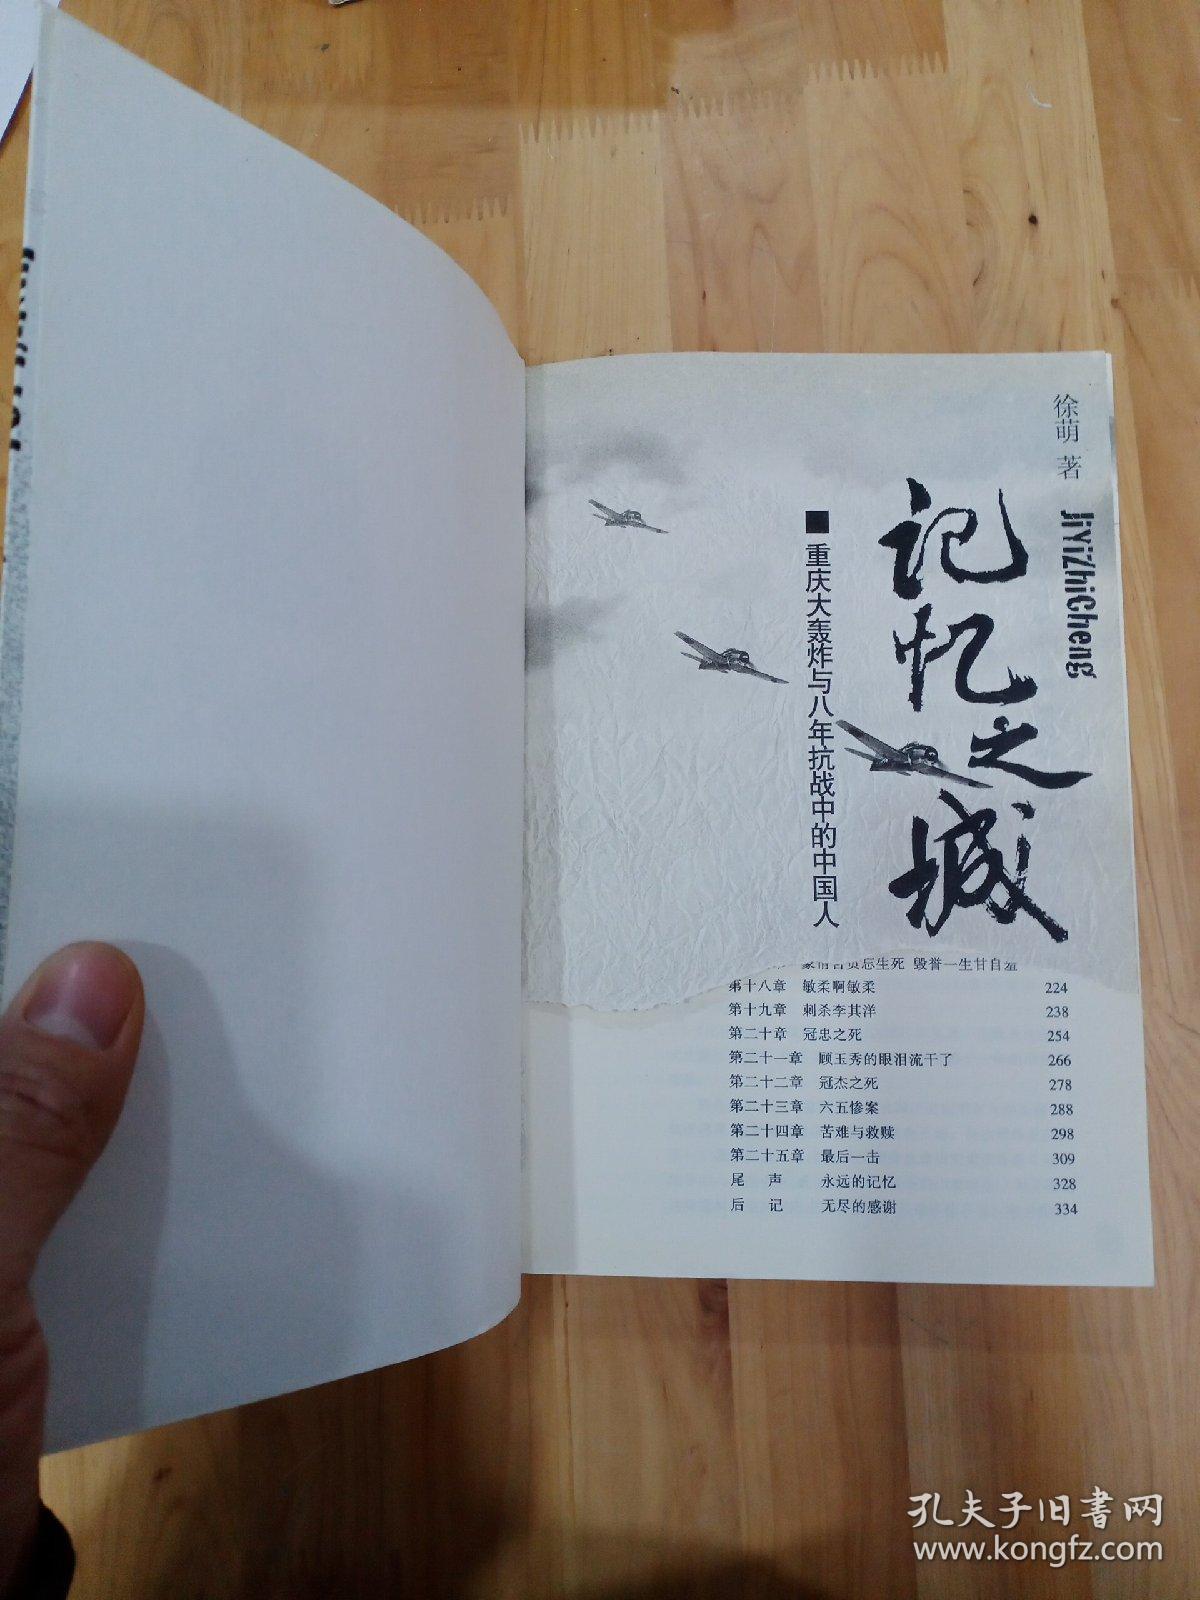 徐萌 著
JiYiZhiCheng
记忆之城
■重庆大轰炸与八年抗战中的中国人
忘生死 毁誉一生甘自羞
第十八章 敏柔啊敏柔 224
第十九章 刺杀李其洋 238
第二十章 冠忠之死 254
第二十一章 顾玉秀的眼泪流干了 266
第二十二章 冠杰之死 278
第二十三章 六五惨案 288
第二十四章 苦难与救赎 298
第二十五章 最后一击 309
尾 声 永远的记忆 328
后 记 无尽的感谢 334
孔夫子旧书网
www.kongfz.com